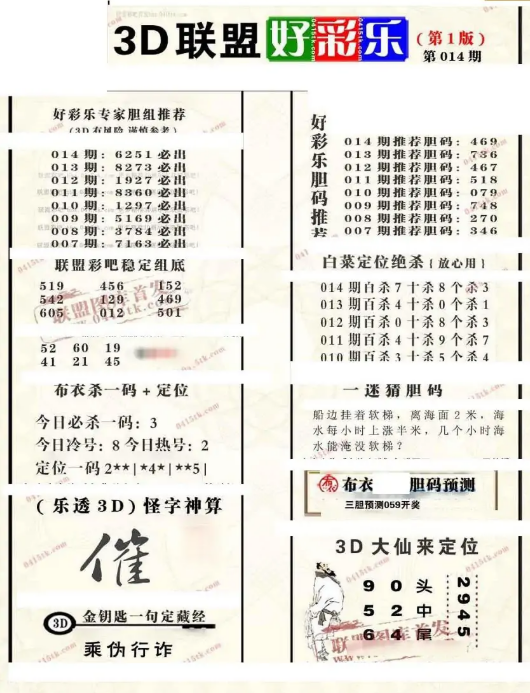 3D联盟好彩乐
(第1版)
第014期
好彩乐专家胆组推荐
(3D有风险 谨慎参考)
014期：6251必出
013期：8273必出
012期：1927必出
011期：8360必出
010期：1297必出
009期：5169必出
008期：3784必出
007期：7163必出
联盟彩吧稳定组底
519 456 152
542 129 469
605 012 501
52 60 19
41 21 45
布衣杀一码+定位
今日必杀一码：3
今日冷号：8今日热号：2
定位一码2**|*4*|**5|
(乐透3D)怪字神算
催
3D 金钥匙一句定藏经
乘伪行诈
好彩乐胆码推荐
014期推荐胆码：469
013期推荐胆码：736
012期推荐胆码：467
011期推荐胆码：518
010期推荐胆码：079
009期推荐胆码：748
008期推荐胆码：270
007期推荐胆码：346
白菜定位绝杀(放心用)
014期百杀7十杀8个杀3
013期百杀4十杀0个杀1
012期百杀0十杀8个杀3
011期百杀4十杀9个杀7
010期百杀3十杀5个杀4
一迷猜胆码
船边挂着软梯，离海面2米，海
水每小时上涨半米，几个小时海
水能淹没软梯？
布衣 胆码预测
三胆预测059开奖
3D大仙来定位
9 0 头
5 2 中
6 4 尾
2945